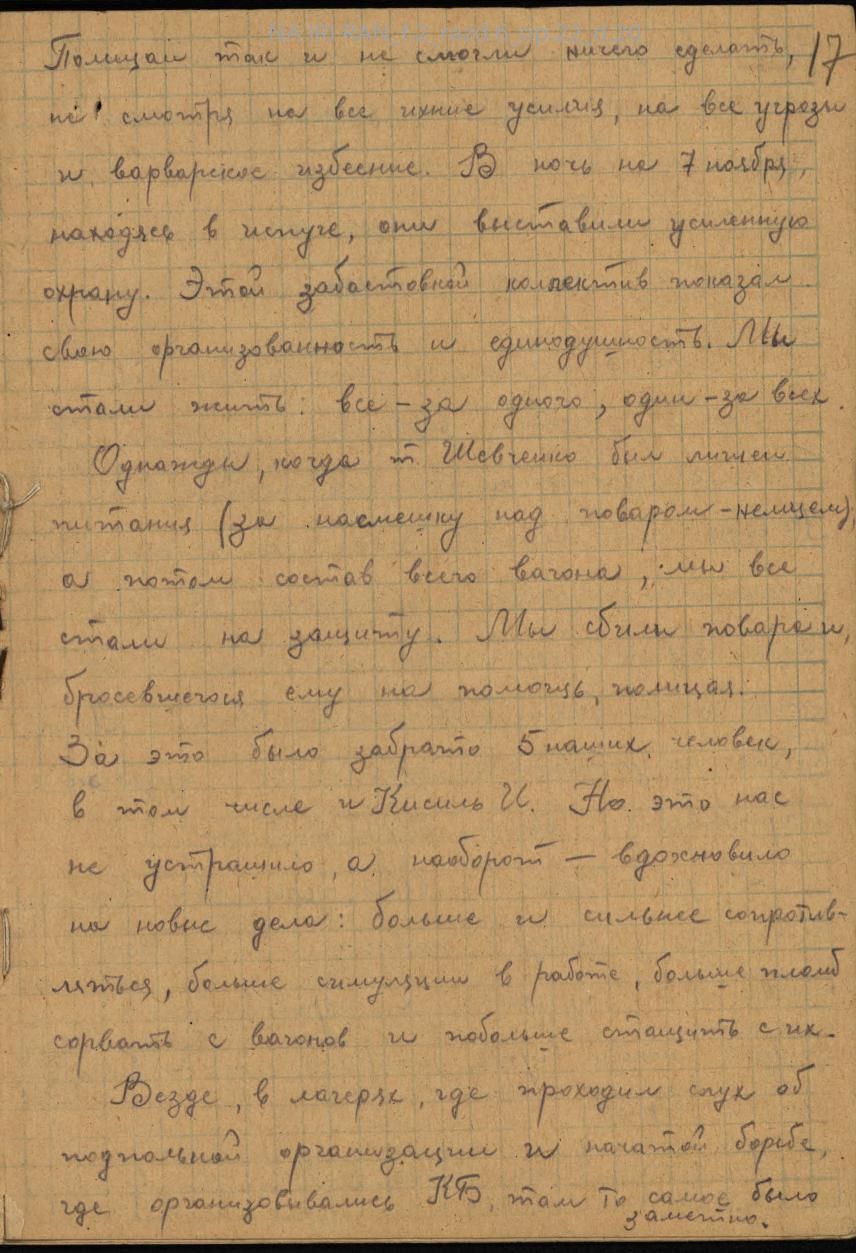 Полицаи так и не смогли ничего сделать, 17
не смотря на все ихние усилия, на все угрозы
и варварское избеение. В ночь на 7 ноября,
находясь в испуге, они выставили усиленную
охрану. Этой забастовкой коллектив показал
свою организованность и единодушность. Мы
стали жить: все – за одного, один – за всех.
Однажды, когда т. Шевченко был лишен
питания (за насмешку над поваром – немцем),
а потом состав всего вагона, мы все
стали на защиту. Мы сбили повара и,
бросевшегося ему на помощь, полицая.
За это было забрато 5 наших человек,
в том числе и Кисиль И. Но это нас
не устрашило, а наоборот — вдохновило
на новые дела: больше и сильнее сопротив-
ляться, больше симуляции в работе, больше пломб
сорвать с вагонов и побольше стащить с их.
Везде, в лагерях, где проходил слух об
подпольной организации и начатой борьбе,
где организовывались КБ, там то самое было
заметно.